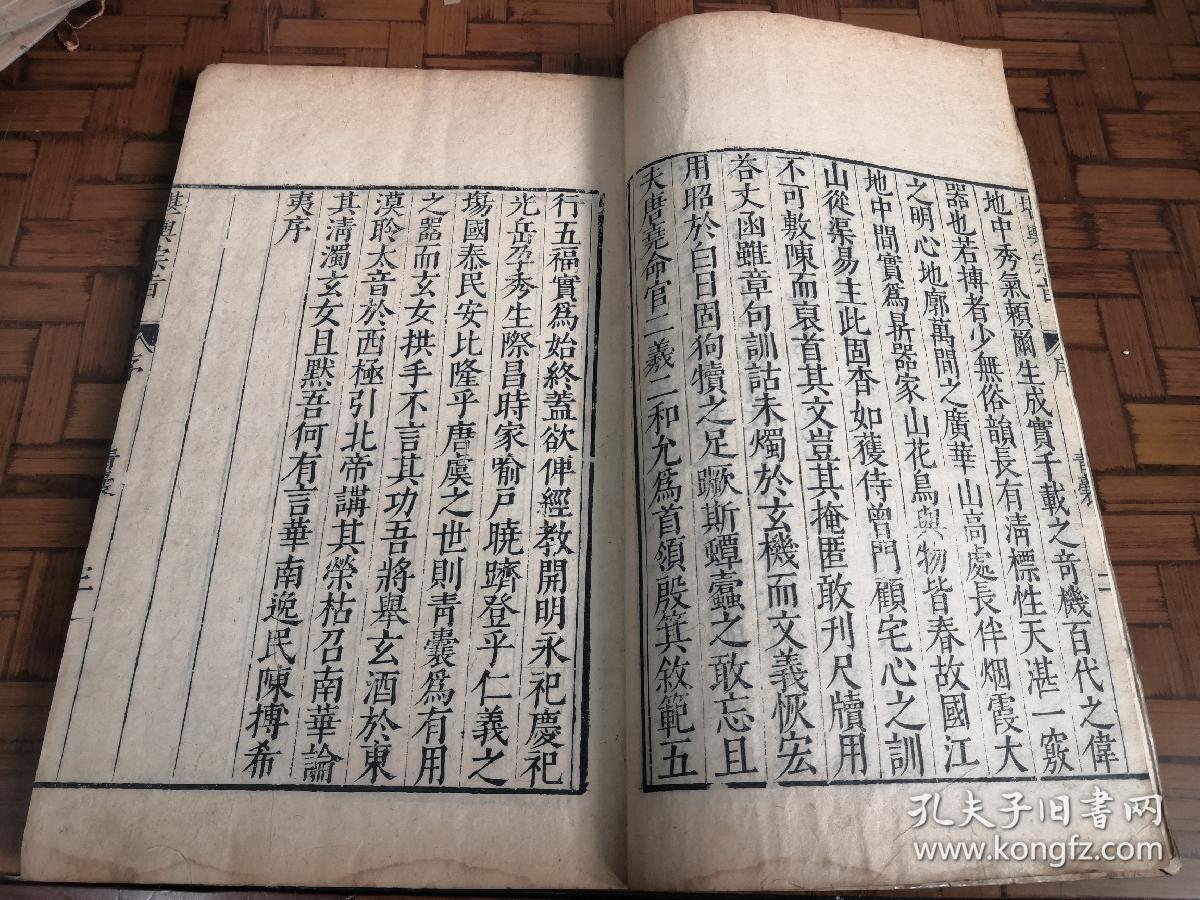 地中秀氣賴爾生成實千載之奇機百代之偉
器也若搏者少無俗韻長有清標性天湛一竅
之明心地廓萬間之廣華山高處長伴烟霞大
地中間實爲昜器家山花鳥與物皆春故國江
山從渠易主此固杳如獲侍曾門顧宅心之訓
不可敷陳而裒首其文豈其掩匿敢刊尺牘用
荅丈函雖章句訓詁未燭於玄機而文義恢宏
用昭於白日固狗犢之足蹶斯蟫蠹之敢忘且
夫唐堯命官二羲二和允爲首領殷箕敘範五
行五福實爲始終蓋欲俾經教開明永祀慶祀
光岳孕秀生際昌時家喻戶曉躋登乎仁義之
塲國泰民安比隆乎唐虞之世則青囊爲有用
之器而玄女拱手不言其功吾將舉玄酒於東
漠聆太音於西極引北帝講其榮枯召南華論
其清濁玄女且默吾何有言華南逸民陳搏希
夷序
堪輿宗旨
序
青囊
三
孔夫子旧书网
www.kongfz.com